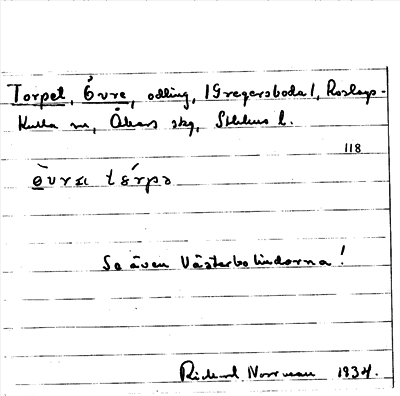 Torpet, Övre, odling, /Gregersboda/, Roslags-
Kulla sn, Åkers skg, Sthlms l.
118
ò̱vrə tórpə
Se även Västerbolindorna!
Rickard Norrman 1934.